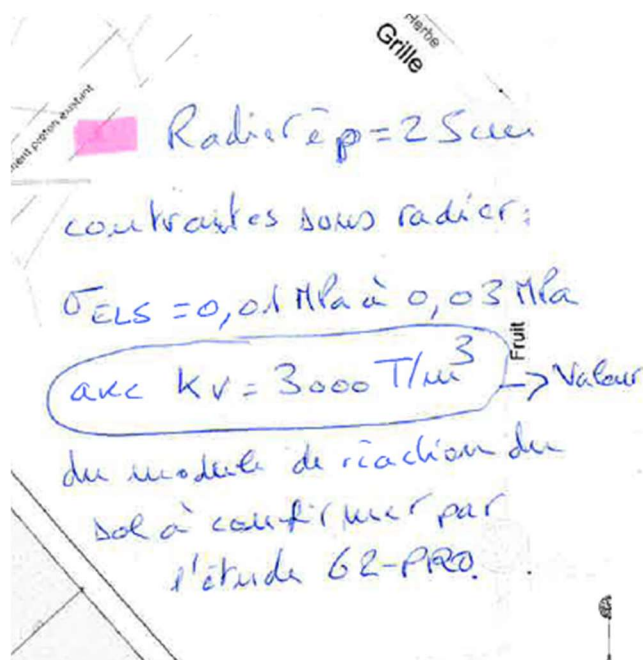 Herbe
Grille
ment piéton existant
Radier ép = 25cm
contraintes sous radier:
σELS = 0,01 MPa à 0,03 MPa
Fruit
avec Kv = 3000 T/m³ → Valeur
du module de réaction du
sol à confirmer par
l'étude G2-PRO.